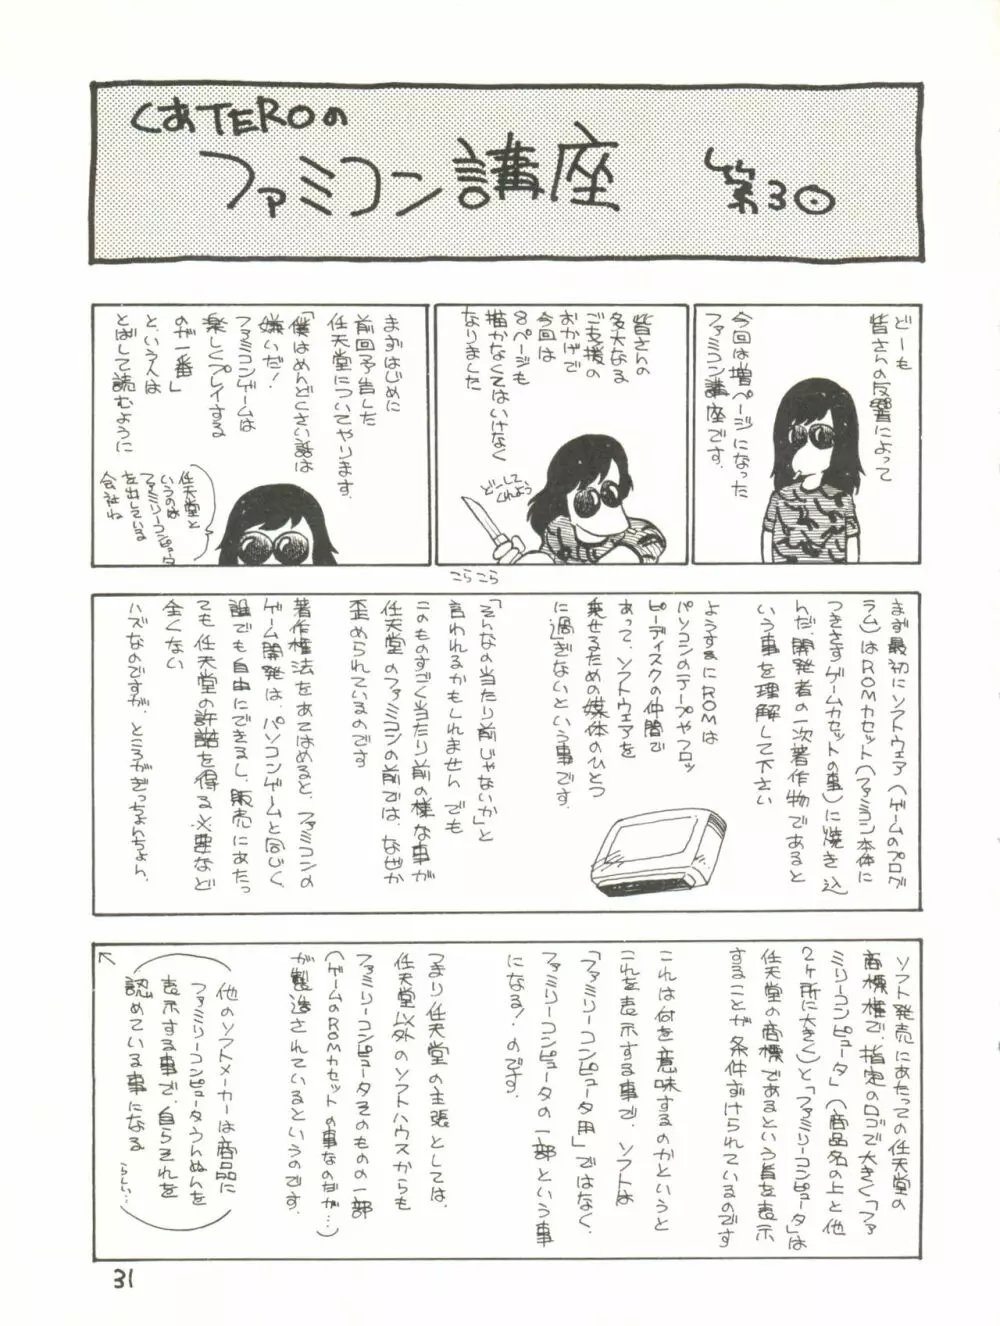 くあTEROの
ファミコン講座 第3回
どーも
皆さんの反響によって
今回は増ページになった
ファミコン講座です。
皆さんの
多大なる
ご支援の
おかげで
今回は
8ページも
描かなくてはいけなく
なりました
どーして
くれよう
こらこら
まずはじめに
前回予告した
任天堂についてやります。
「僕はめんどくさい話は
嫌いだ!
ファミコンゲームは
楽しくプレイする
のが一番」
と、いう人は
とばして読むように
任天堂と
いうのは
ファミリーコンピュータ
を出している
会社ね
まず最初にソフトウェア(ゲームのプログ
ラム)はROMカセット(ファミコン本体に
つきさすゲームカセットの事)に焼き込
んだ、開発者の一次著作物であると
いう事を理解して下さい
ようするにROMは
パソコンのテープやフロッ
ピーディスクの仲間で
あって、ソフトウェアを
乗せるための媒体のひとつ
に過ぎないという事です。
「そんなの当たり前じゃないか」と
言われるかもしれません でも
このものすごく当たり前の様な事が
任天堂のファミコンの前では、なぜか
歪められているのです
著作権法をあてはめると、ファミコンの
ゲーム開発は、パソコンゲームと同じく、
誰でも自由にできるし、販売にあたっ
ても任天堂の許諾を得る必要など
全くない
ハズなのですが、ところがぎっちょんちょん、
ソフト発売にあたっての任天堂の
商標権で、指定のロゴで大きく「ファ
ミリーコンピュータ」(商品名の上と他
2ケ所に大きく)と「ファミリーコンピュータ」は
任天堂の商標であるという旨を表示
することが条件ずけられているのです
これは何を意味するのかというと
これを表示する事で、ソフトは
「ファミリーコンピュータ用」ではなく、
ファミリーコンピュータの一部という事
になる!のです。
つまり任天堂の主張としては、
任天堂以外のソフトハウスからも
ファミリーコンピュータそのものの一部
(ゲームのROMカセットの事なのだが…)
が製造されているというのです。
他のソフトメーカーは商品に
ファミリーコンピュータうんぬんを
表示する事で、自らそれを
認めている事になる
らしい…
31